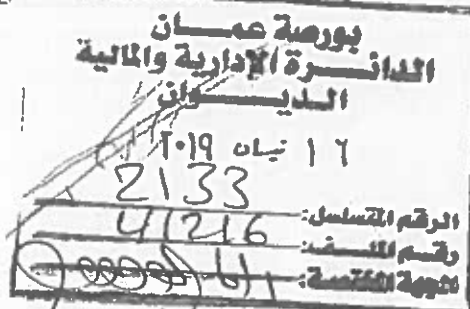 بورصة عمان
الدائرة الإدارية والمالية
الديوان
١٦ نيسان ٢٠١٩
الرقم المتسلسل: 2133
رقم الملف: 41216
الجهة المختصة: